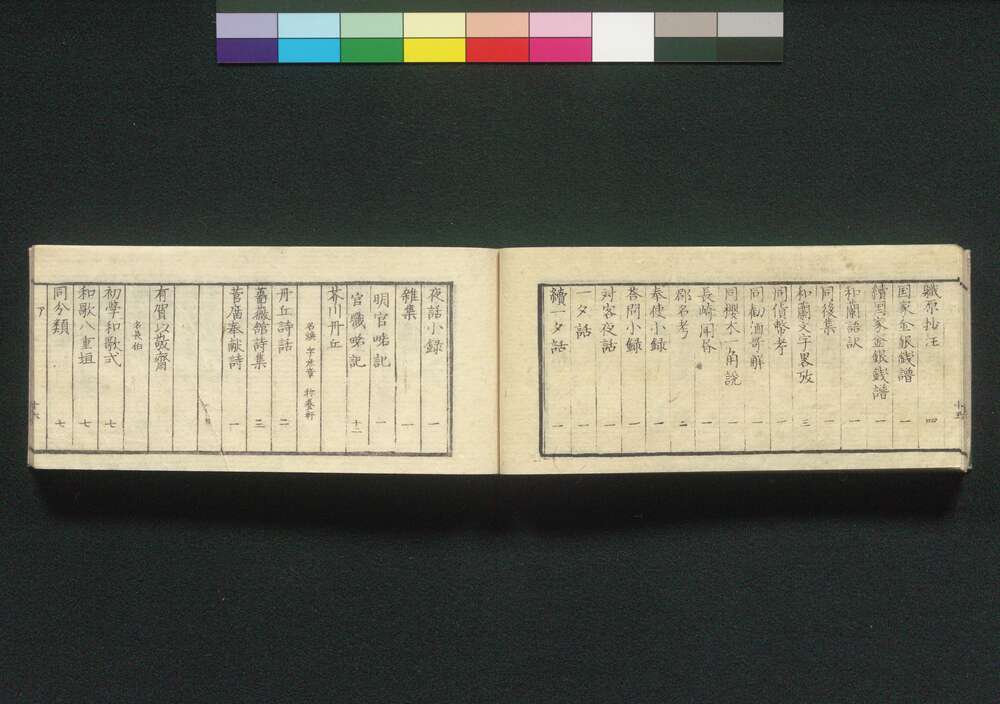 職原抄注 四
国家金銀銭譜 一
續国家金銀銭譜 一
和蘭語訳 一
同後集 一
和蘭文字畧攷 三
同貨幣考 一
同勧酒哥解 一
同櫻木一角說 一
長崎聞 一
郡名考 二
奉使小録 一
荅問小録 一
対客夜話 一
一夕話 一
續一夕話 一
十五
夜話小録 一
雜集 一
明官呼記 一
官職呼記 十二
芥川丹丘
名煥 字彦章 
丹丘詩話 二
薔薇舘詩集 三
菅廣奉献詩 一
有賀以敬齋
名長伯
初學和歌式 七
和歌八重垣 七
同分類 七
ア
十六